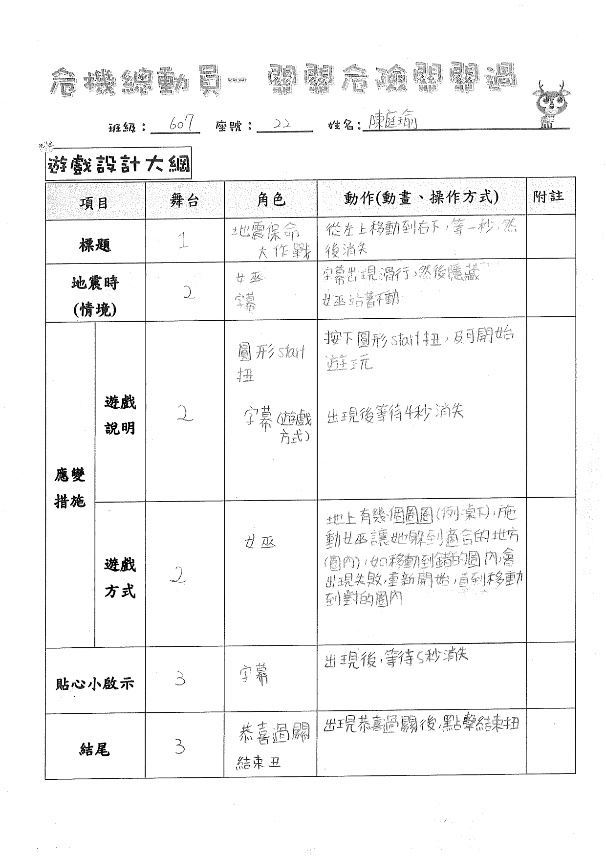 危機總動員-關關危險關關過
班級：607 座號：22 姓名：陳庭瑜
遊戲設計大綱
項目 舞台 角色 動作(動畫、操作方式) 附註
標題 1 地震保命 從左上移動到右下，等一秒，然
大作戰 後消失
地震時 2 女巫 字幕出現滑行，然後隱藏
(情境) 字幕 女巫站著不動
應變
措施
遊戲
說明
2
圓形start
扭
按下圓形start扭，及可開始
遊玩
字幕(遊戲
方式)
出現後等待4秒消失
遊戲
方式
2
女巫
地上有幾個圓圈(例:桌下)，拖
動女巫讓她躲到適合的地方
(圈內)，如移動到錯的圈內，會
出現失敗，重新開始，直到移動
到對的圈內
貼心小啟示 3 字幕 出現後，等待5秒消失
結尾 3 恭喜過關 出現恭喜過關後，點擊結束扭
結束丑